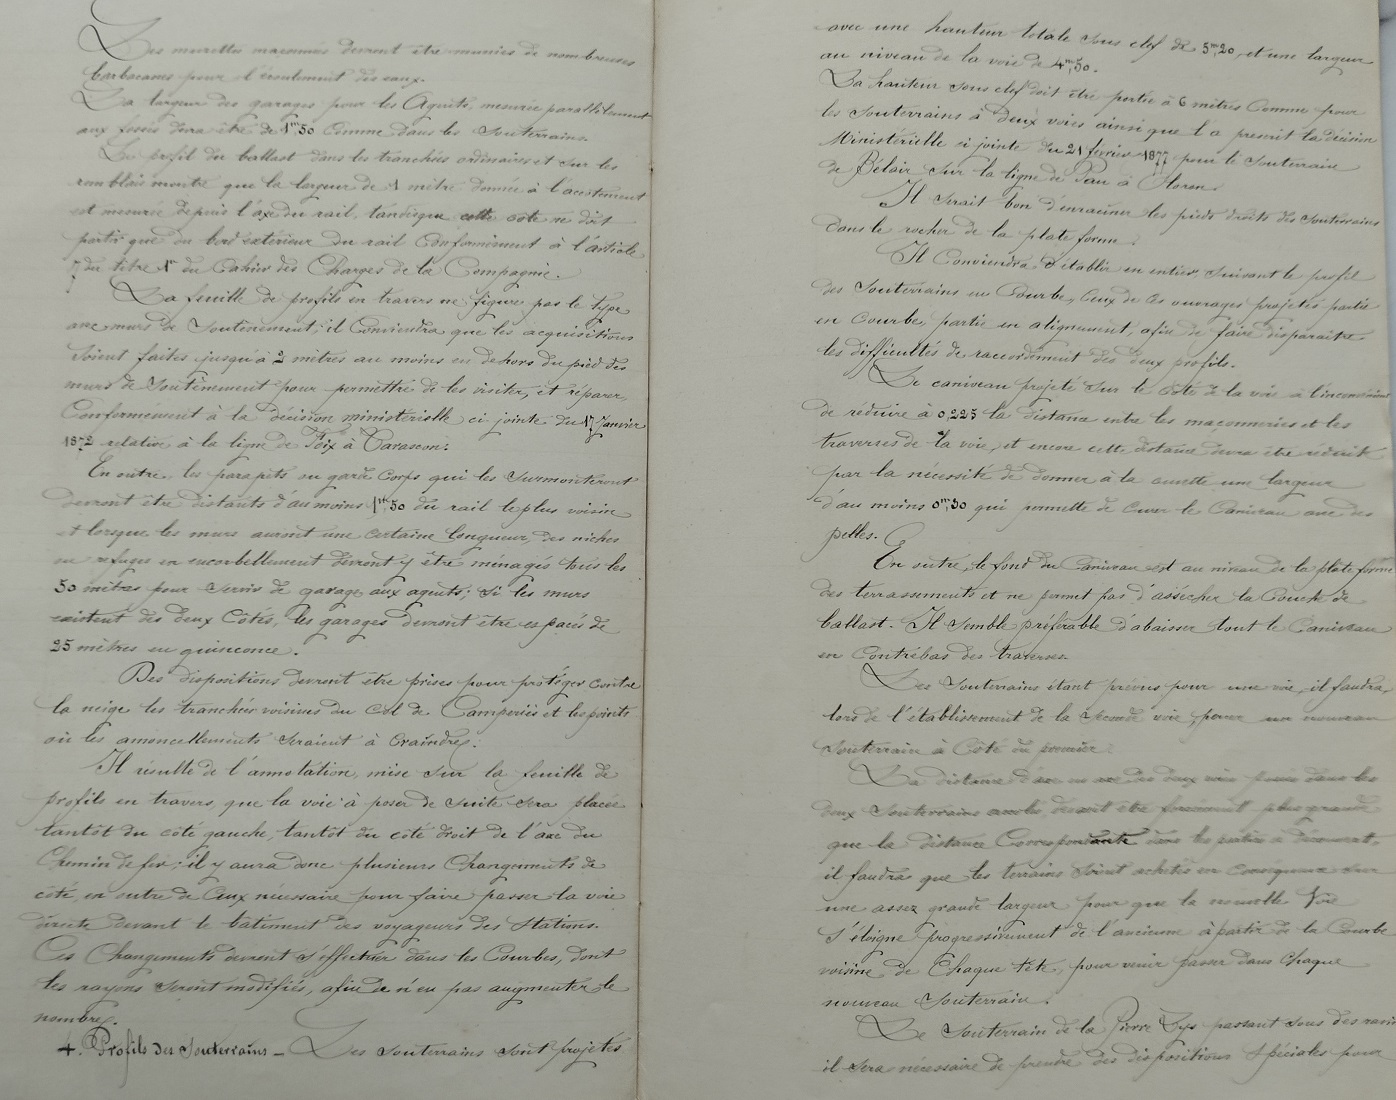 Les murettes maçonnées devront être munies de nombreuses
barbacanes pour l'écoulement des eaux.
La largeur des garages pour les Agents, mesurée parallèlement
aux fossés devra être de 1m,50 comme dans les Souterrains.
Le profil du ballast dans les tranchées ordinaires et sur les
remblais montre que la largeur de 1 mètre donnée à l'accotement
est mesurée depuis l'axe du rail, tandisque cette cote ne doit
partir que du bord extérieur du rail Conformément à l'article
7 du titre 1er du Cahier des Charges de la Compagnie.
La feuille de profils en travers ne figure pas le type
avec murs de Soutènement; il Conviendra que les acquisitions
soient faites jusqu'à 2 mètres au moins en dehors du pied des
murs de Soutènement pour permettre de les visiter, et réparer,
Conformément à la décision ministérielle ci jointe du 17 Janvier
1872 relative à la ligne de Foix à Tarascon.
En outre, les parapets ou garde Corps qui les Surmonteront
devront être distants d'au moins 1m,50 du rail le plus voisin
et lorsque les murs auront une certaine longueur, des niches
ou refuges en encorbellement devront y être ménagés tous les
50 mètres pour servir de garage aux agents; si les murs
existent des deux Côtés, les garages devront être espacés de
25 mètres en quinconce.
Des dispositions devront être prises pour protéger contre
la neige les tranchées voisines du Col de Camperiès et les points
où les amoncellements seraient à Craindre.
Il résulte de l'annotation, mise sur la feuille de
profils en travers, que la voie à poser de suite sera placée
tantôt du côté gauche, tantôt du côté droit de l'axe du
Chemin de fer; il y aura donc plusieurs Changements de
côté, en outre de Ceux nécessaire pour faire passer la voie
directe devant le bâtiment des voyageurs des Stations.
Ces Changements devront s'effectuer dans les Courbes, dont
les rayons seront modifiés, afin de n'en pas augmenter le
nombre.
4. Profils des Souterrains — Les Souterrains sont projetés
avec une hauteur totale sous clef de 5m,20, et une largeur
au niveau de la voie de 4m,50.
La hauteur sous clef doit être portée à 6 mètres Comme pour
les Souterrains à deux voies ainsi que l'a prescrit la décision
Ministérielle ci jointe du 21 février 1877 pour le Souterrain
de Bélair sur la ligne de Pau à Oloron.
Il serait bon d'enraciner les pieds droits des Souterrains
dans le rocher de la plate forme.
Il Conviendra d'établir en entier suivant le profil
des Souterrains en Courbe, Ceux de Ces ouvrages projetés partie
en Courbe, partie en alignement, afin de faire disparaître
les difficultés de raccordement des deux profils.
Le caniveau projeté sur le côté de la voie a l'inconvénient
de réduire à 0,225 la distance entre les maçonneries et les
traverses de la voie, et encore cette distance devra être réduite
par la nécessité de donner à la cunette une largeur
d'au moins 0m,30 qui permette de Curer le Caniveau avec des
pelles.
En outre, le fond du Caniveau est au niveau de la plate forme
des terrassements et ne permet pas d'assécher la Couche de
ballast. Il semble préférable d'abaisser tout le Caniveau
en Contrebas des traverses.
Les Souterrains étant prévus pour une voie, il faudra,
lors de l'établissement de la seconde voie, percer un nouveau
Souterrain à Côté du premier.
La distance d'axe en axe des deux voies posées dans les
deux Souterrains devant être forcément plus grande
que la distance Correspondante dans les parties à découvert,
il faudra que les terrains soient achetés en Conséquence sur
une assez grande largeur pour que la nouvelle Voie
s'éloigne progressivement de l'ancienne à partir de la Courbe
voisine de Chaque tête, pour venir passer dans Chaque
nouveau Souterrain.
Le Souterrain de la Pierre Lys passant sous des ravins
il sera nécessaire de prendre des dispositions spéciales pour